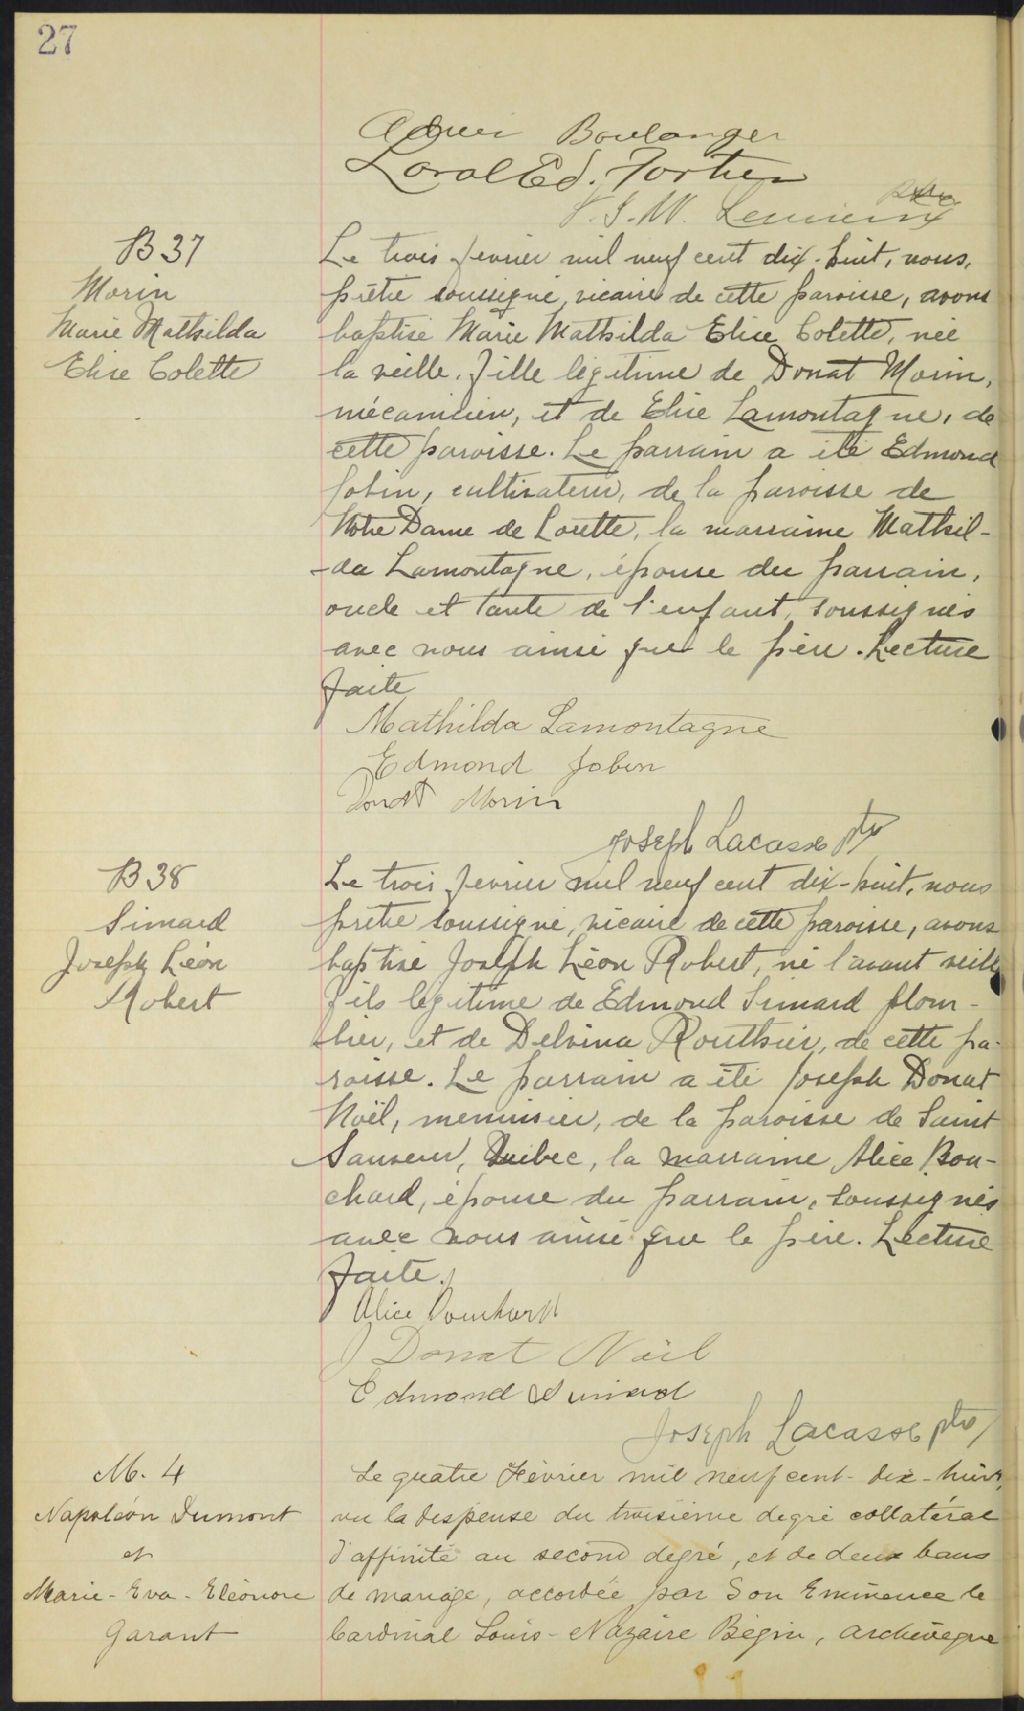 27
Boulanger
Laval Ed. Fortier
V. J. W. Lemieux ptre
B 37
Morin
Marie Mathilda
Elise Colette
Le trois février mil neuf cent dix-huit, nous,
prêtre soussigné, vicaire de cette paroisse, avons
baptisé Marie Mathilda Elise Colette, née
la veille, fille légitime de Donat Morin,
mécanicien, et de Elise Lamontagne, de
cette paroisse. Le parrain a été Edmond
Jobin, cultivateur, de la paroisse de
Notre Dame de Lorette, la marraine Mathil-
-da Lamontagne, épouse du parrain,
oncle et tante de l'enfant, soussignés
avec nous ainsi que le père. Lecture
faite
Mathilda Lamontagne
Edmond Jobin
Donat Morin
Joseph Lacasse ptre
B 38
Simard
Joseph Léon
Robert
Le trois février mil neuf cent dix-huit, nous
prêtre soussigné, vicaire de cette paroisse, avons
baptisé Joseph Léon Robert, né l'avant veille
fils légitime de Edmond Simard plom-
bier, et de Delvina Routhier, de cette pa-
roisse. Le parrain a été Joseph Donat
Noël, menuisier, de la paroisse de Saint
Sauveur, Québec, la marraine Alice Bou-
chard, épouse du parrain, soussignés
avec nous ainsi que le père. Lecture
faite.
Alice Bouchard
J Donat Noël
Edmond Simard
Joseph Lacasse ptre
M. 4
Napoléon Dumont
et
Marie-Eva-Eléonore
Garant
Le quatre Février mil neuf cent-dix-huit,
vu la dispense du troisième degré collatéral
d'affinité au second degré, et de deux bans
de mariage, accordée par Son Eminence le
Cardinal Louis-Nazaire Bégin, archevêque